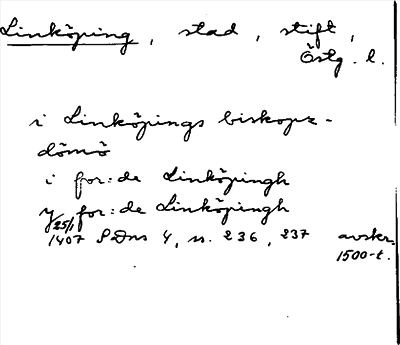 Linköping, stad, stift,
Östg. l.
i Linköpings biskops-
dömö
i for:de Linköpingh
y for:de Linköpingh
25/1
1407 SDns 4, n. 236, 237 avskr.
1500-t.